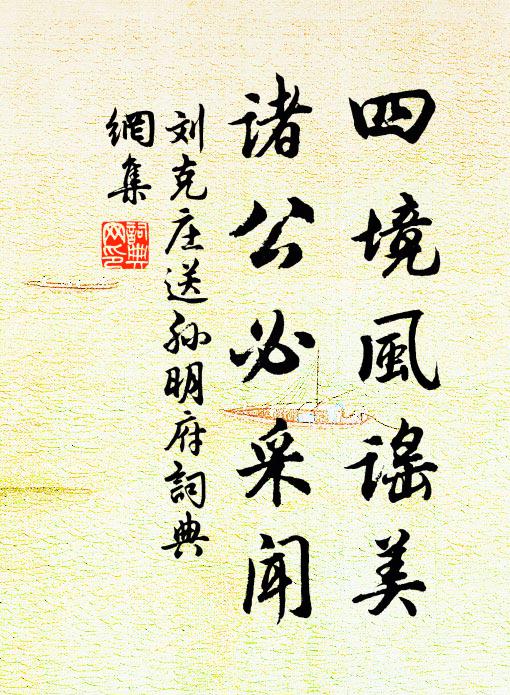 四境風謠美
諸公必采闻
刘克庄送孙明府詞典
網集
詞典
网印